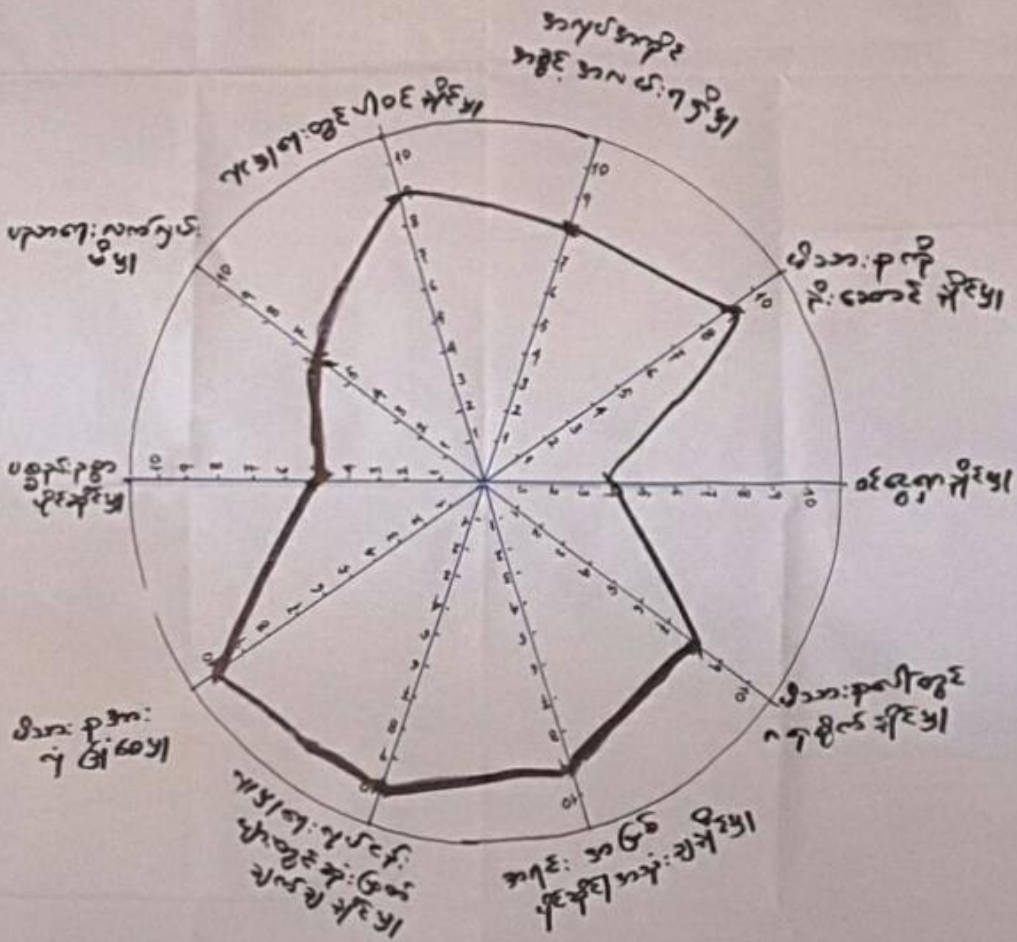 အလုပ်အကိုင်
အခွင့်အလမ်းရရှိမှု
မိသားစုကို
ဦးဆောင်နိုင်မှု
ဝင်ငွေရှာနိုင်မှု
မိသားစုပေါ်တွင်
ဂရုစိုက်နိုင်မှု
အရင်းအမြစ်
ပိုင်ဆိုင်၊ အသုံးချနိုင်မှု
လူမှုရေးလုပ်ငန်း
များတွင်ဆုံးဖြတ်
ချက်ချနိုင်မှု
မိသားစုအား
လုံခြုံစေမှု
ပစ္စည်းဥစ္စာ
ပိုင်ဆိုင်မှု
ပညာရေးလက်လှမ်း
မှီမှု
လူမှုရေးတွင်ပါဝင်နိုင်မှု